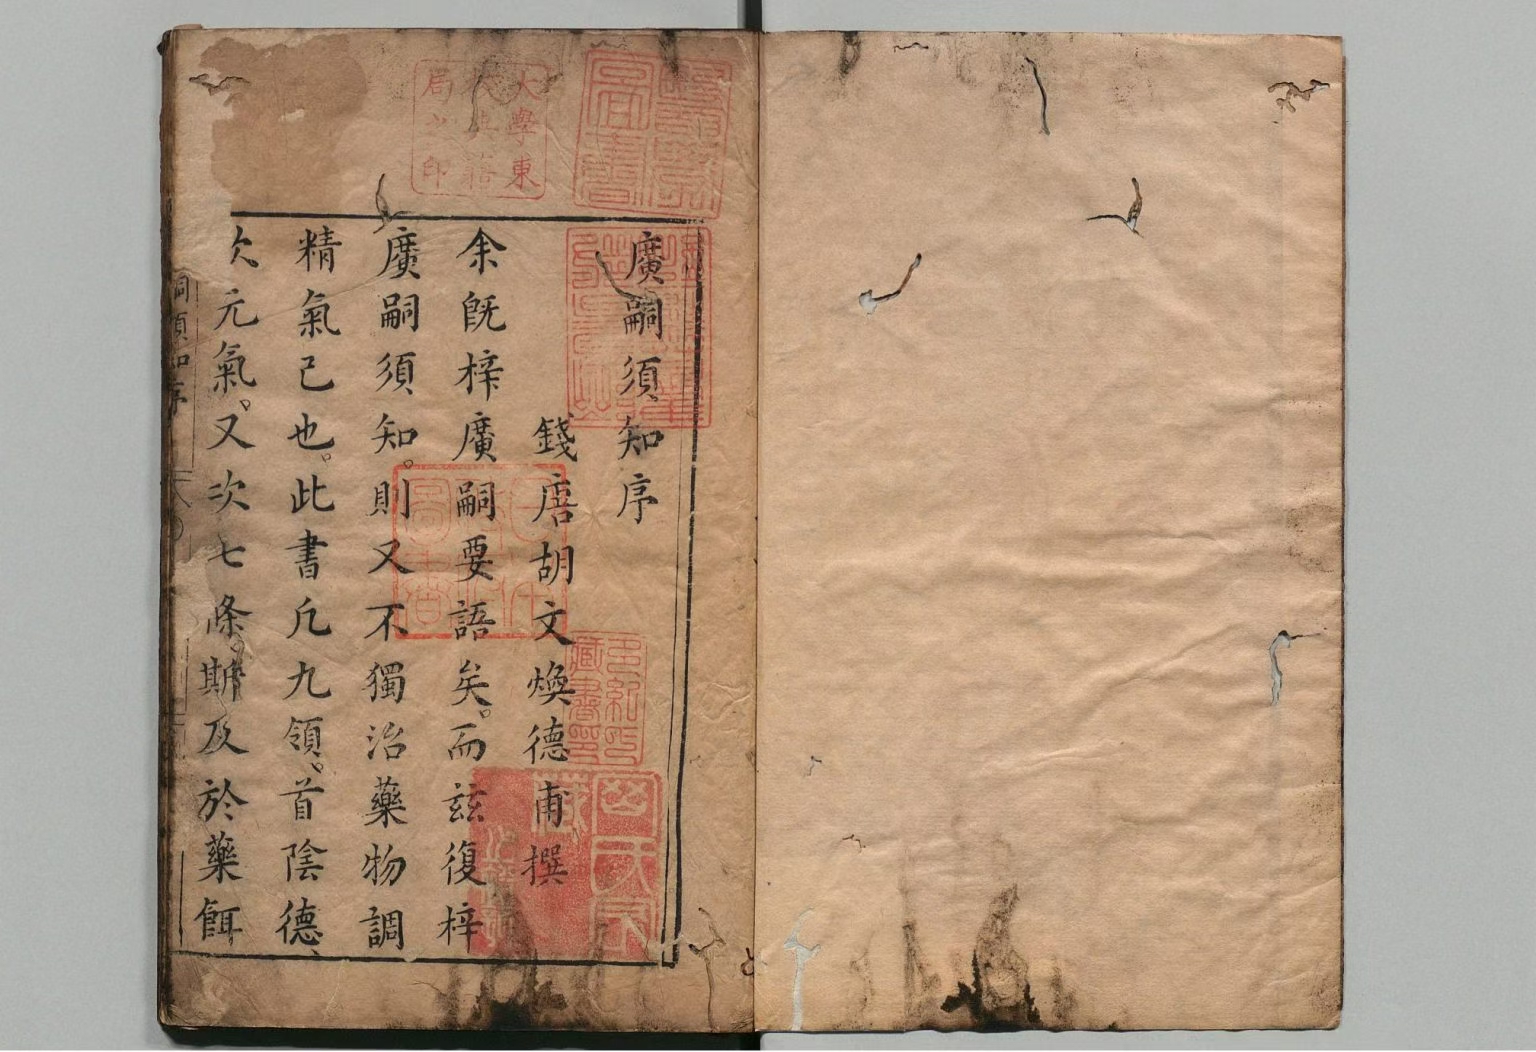 廣嗣須知序
錢唐胡文煥德甫撰
余旣梓廣嗣要語矣。而玆復梓
廣嗣須知。則又不獨治藥物調
精氣已也。此書凢九領。首陰德、
次元氣。又次七條。斯及於藥餌
嗣須知序
大學東
局 印